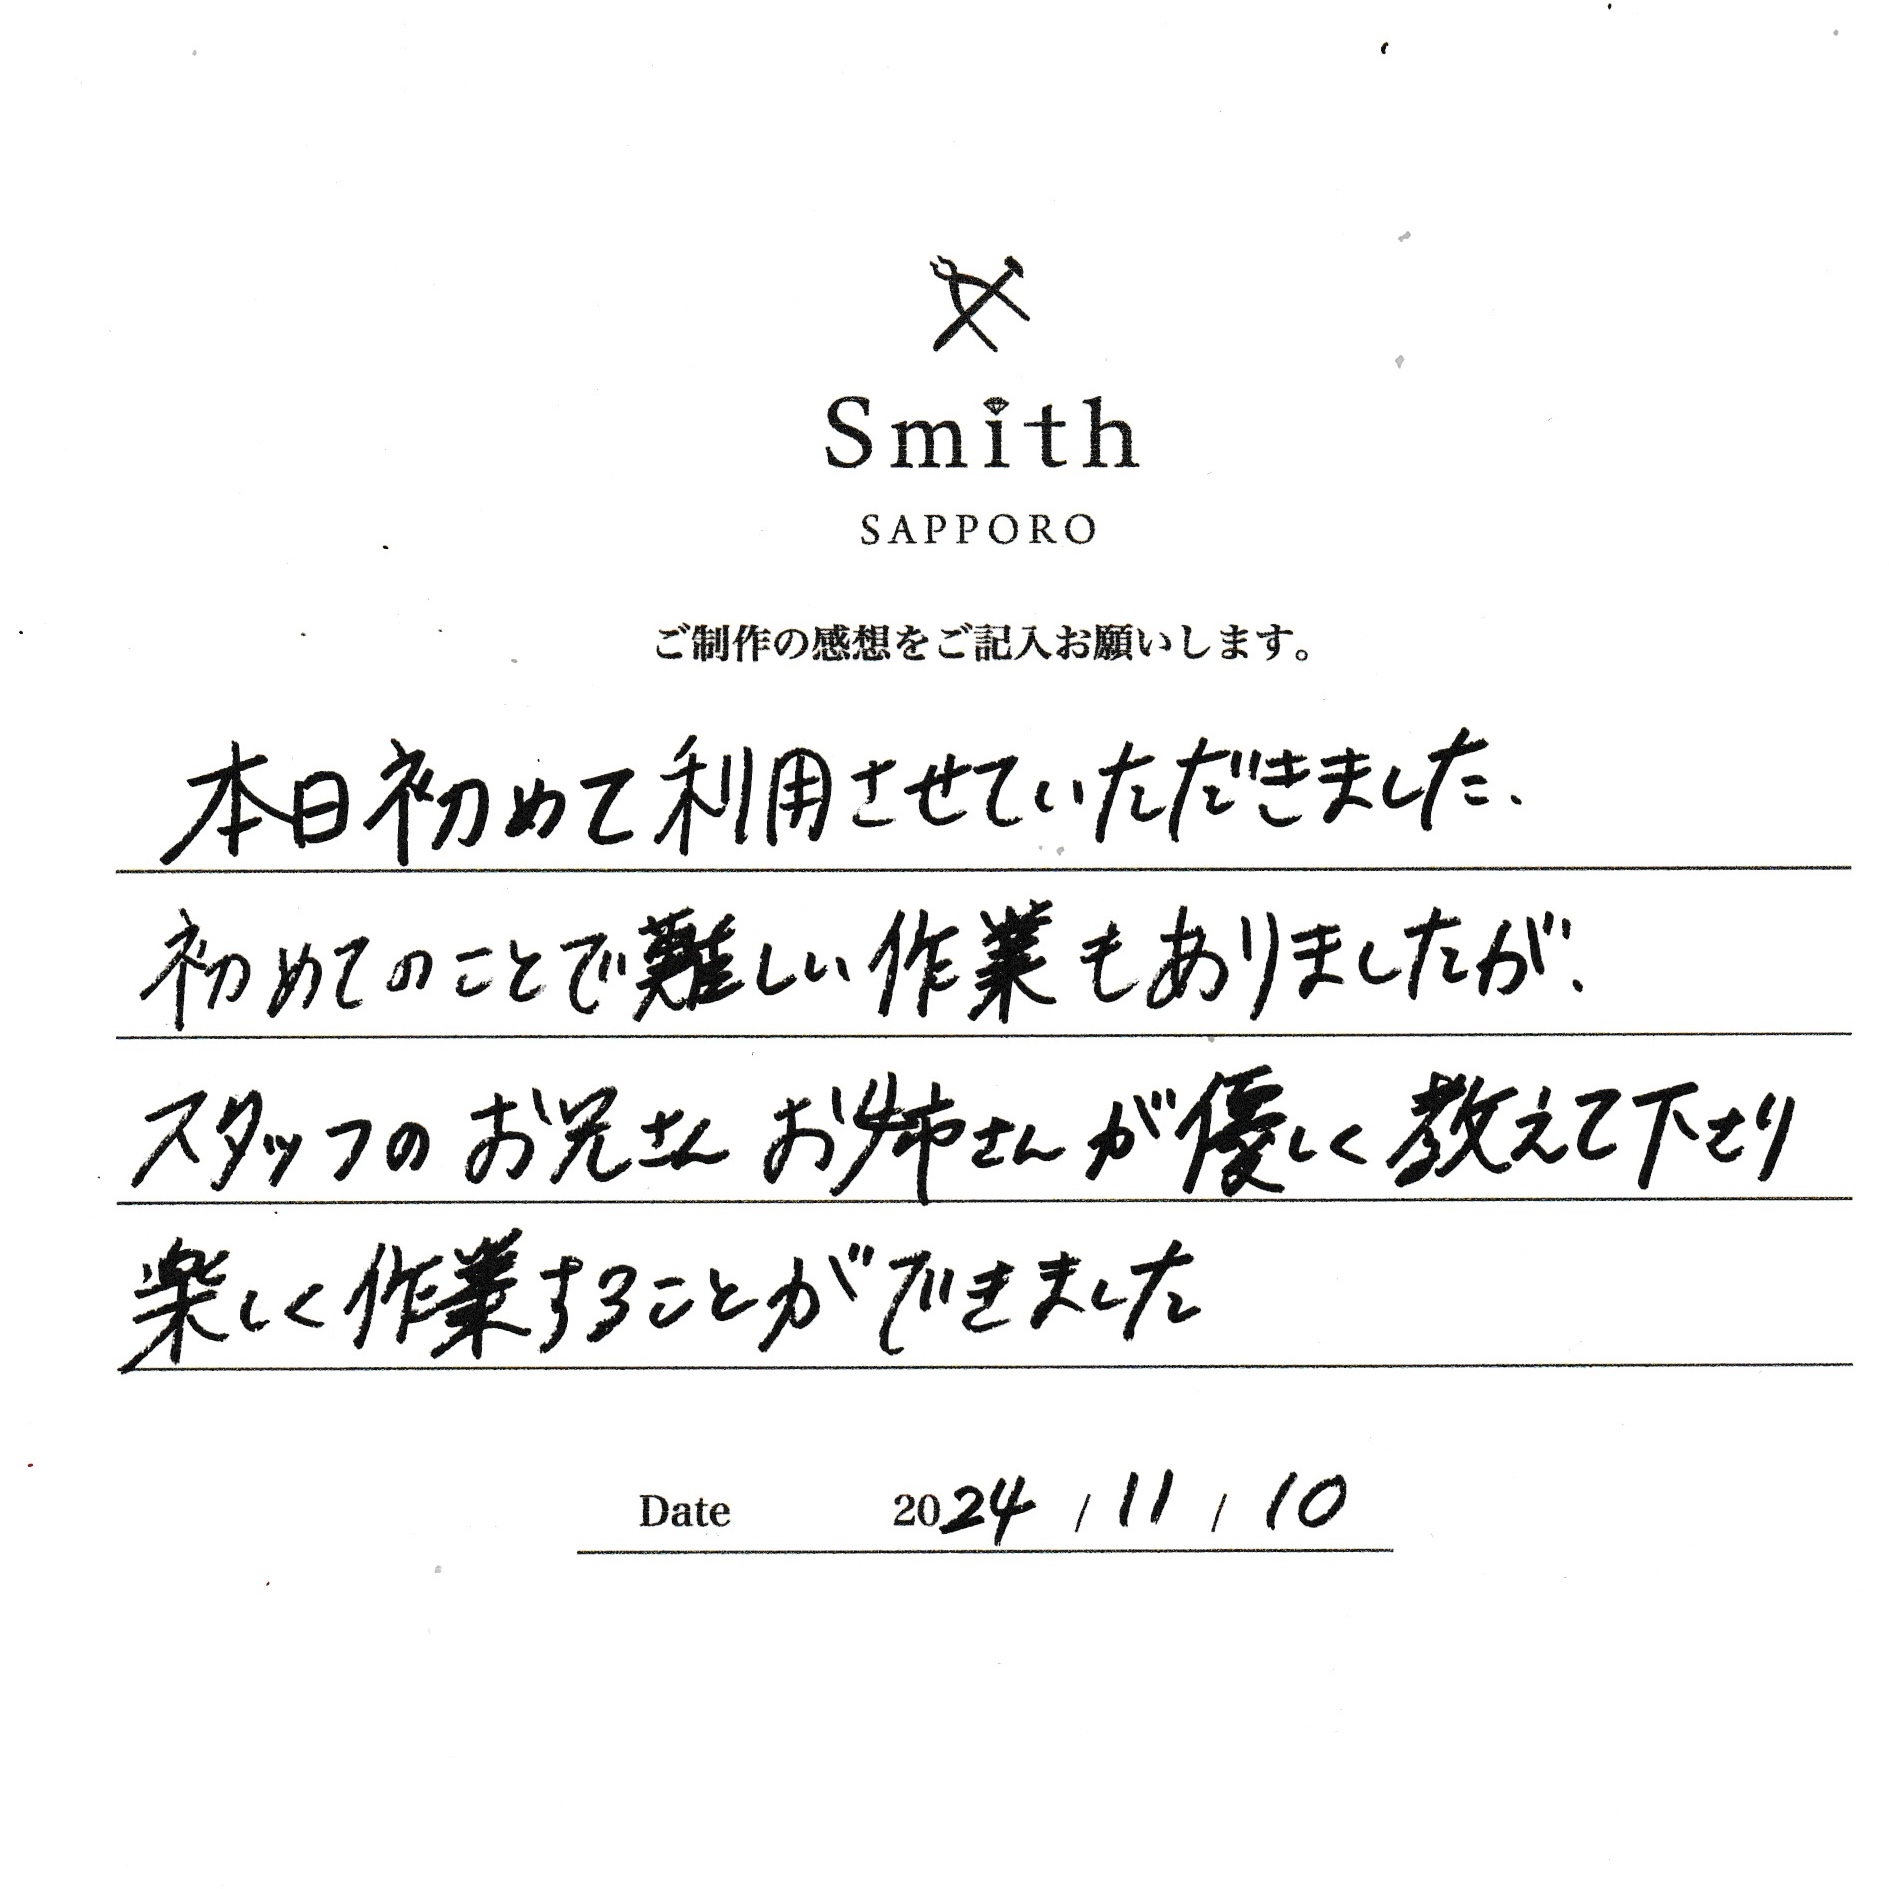 Smith
SAPPORO
ご制作の感想をご記入お願いします。
本日初めて利用させていただきました、
初めてのことで難しい作業もありましたが、
スタッフのお兄さん お姉さんが優しく教えて下さり
楽しく作業することができました
Date 2024 / 11 / 10